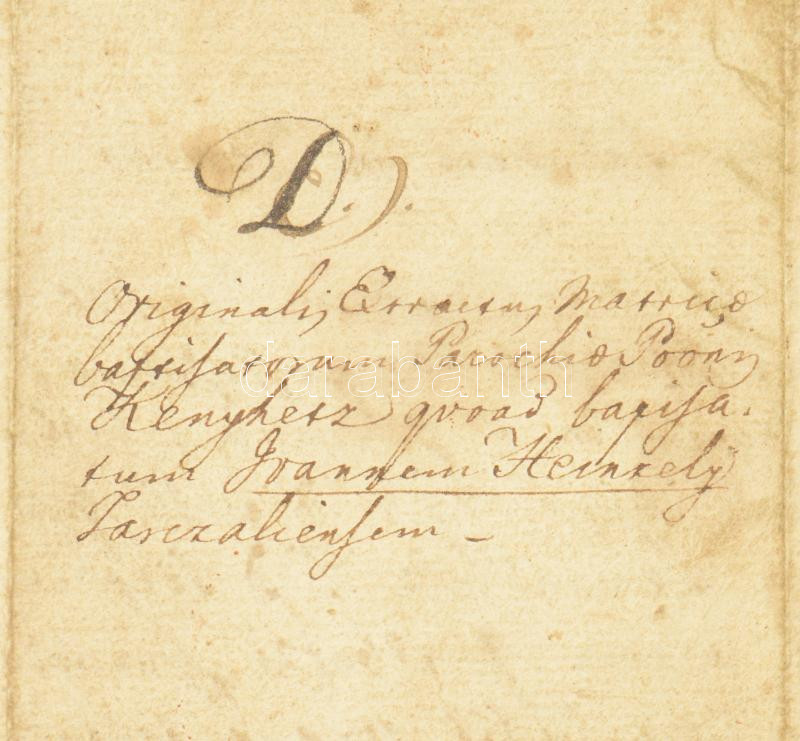 D.).
Originalis Extractus Matricæ
baptisatorum Parochiæ
Kenyhetz qvoad baptisa-
tum Joannem Heinzely
Tarczaliensem –
darabanth